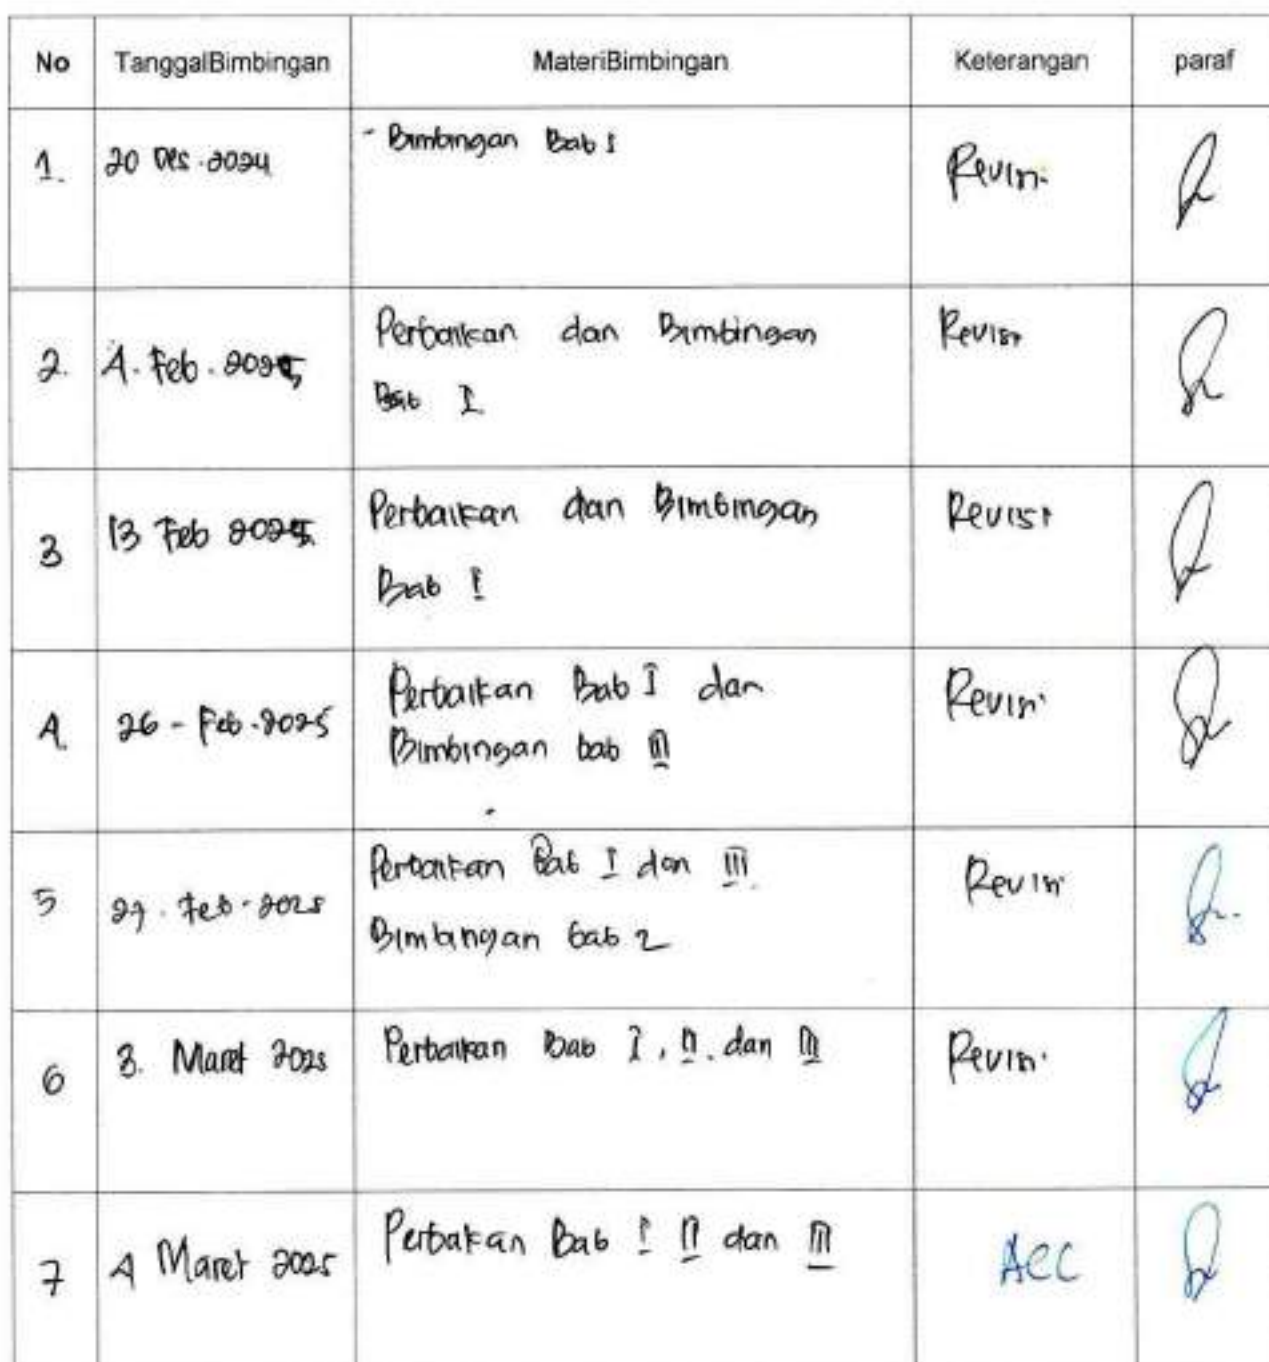 No TanggalBimbingan MateriBimbingan Keterangan paraf
1. 20 Des. 2024 - Bimbingan Bab I Revisi
2. 4. Feb. 2025 Perbaikan dan Bimbingan Revisi
Bab I
3 13 Feb 2025 Perbaikan dan Bimbingan Revisi
Bab I
4. 26 - Feb. 2025 Perbaikan Bab I dan Revisi
Bimbingan bab III
5 27. Feb. 2025 Perbaikan Bab I dan III Revisi
Bimbingan bab 2
6 3. Maret 2025 Perbaikan Bab I, II. dan III Revisi
7 4 Maret 2025 Perbakan Bab I II dan III ACC